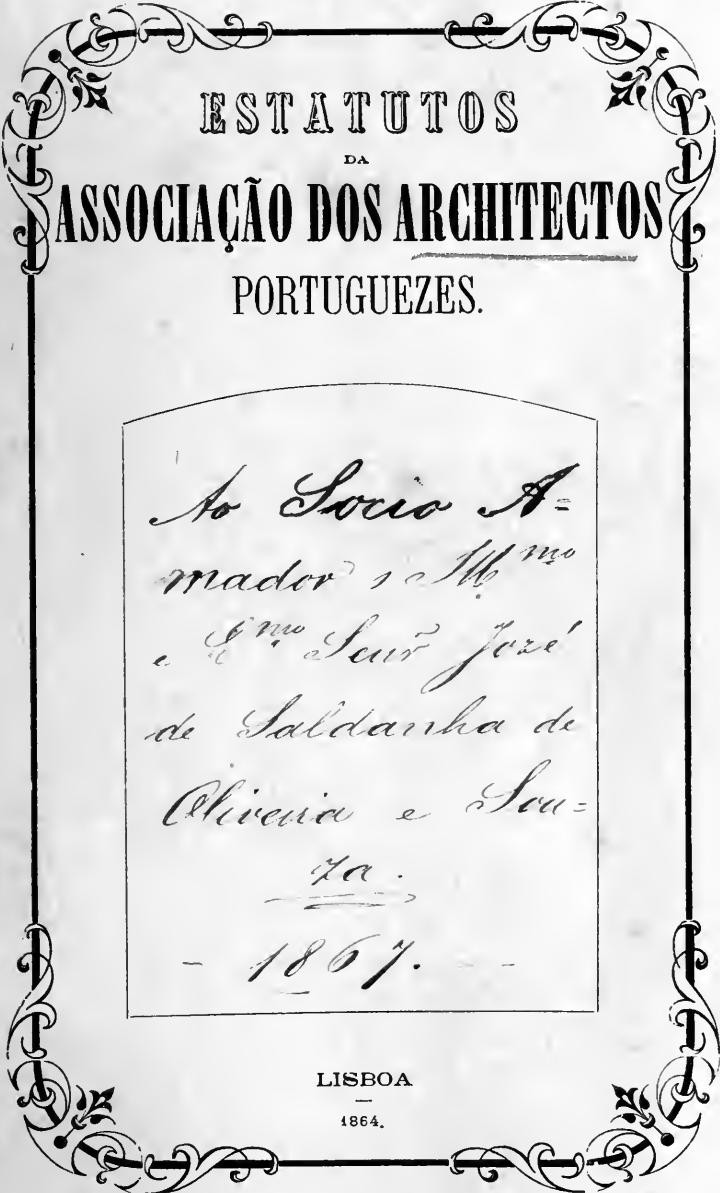 ESTATUTOS
DA
ASSOCIAÇÃO DOS ARCHITECTOS
PORTUGUEZES.
Ao Socio A=
mador o Ill.mo
e E.mo Senr. Jozé
de Saldanha de
Oliveira e Sou=
za.
- 1867. -
LISBOA
1864.